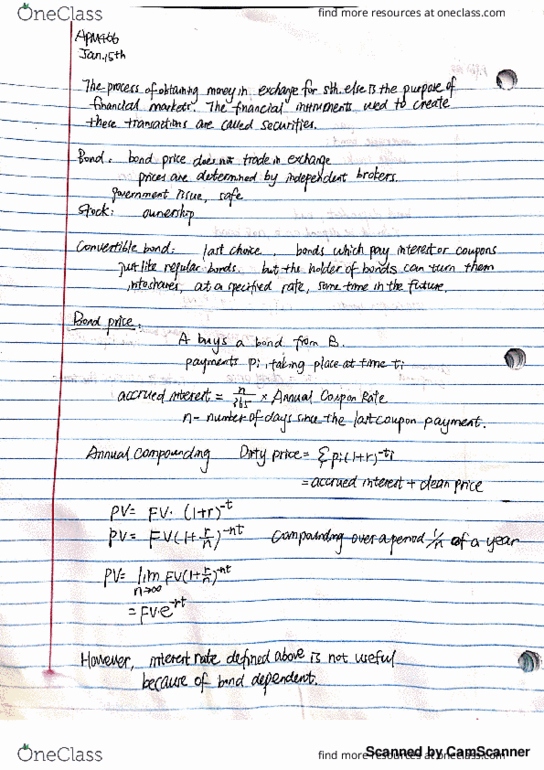 OneClass
find more resources at oneclass.com
APM466
Jan.15th
The process of obtaining money in exchange for sth. else is the purpose of
financial markets. The financial instruments used to create
these transactions are called securities.
Bond: bond price does not trade in exchange
prices are determined by independent brokers.
government issue, safe
Stock: ownership
Convertible bond: last choice, bonds which pay interest or coupons
just like regular bonds. but the holder of bonds can turn them
into shares, at a specified rate, some time in the future.
Bond price:
A buys a bond from B.
payments Pi, taking place at time ti
accrued interest = n/365 × Annual Coupon Rate
n - number of days since the last coupon payment.
Annual compounding Dirty price = Σpi(1+r)^-ti
= accrued interest + clean price
PV = FV· (1+r)^-t
PV = FV(1+r/n)^-nt Compounding over a period 1/n of a year
PV = lim n→∞ FV(1+r/n)^-nt
= FV·e^-rt
However, interest rate defined above is not useful
because of bond dependent.
OneClass
find more resources at oneclass.com
Scanned by CamScanner